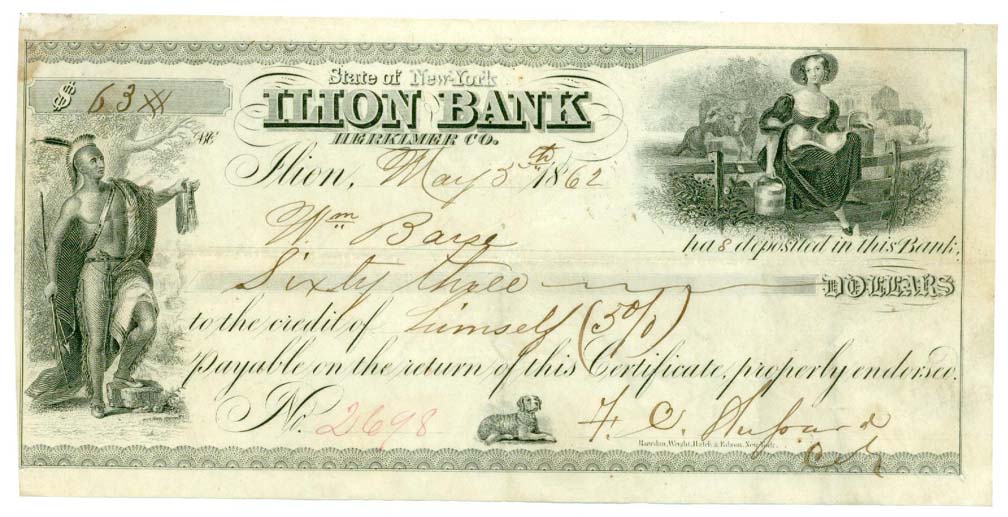 State of New-York
$ 63 XX
ILION BANK
HERKIMER CO.
Ilion, May 5th 1862
Wm Barse
has deposited in this Bank,
Sixty three DOLLARS
to the credit of himself (5%)
payable on the return of this Certificate, properly endorsed.
No. 2698
F. C.
Rawdon, Wright, Hatch & Edson, New-York.